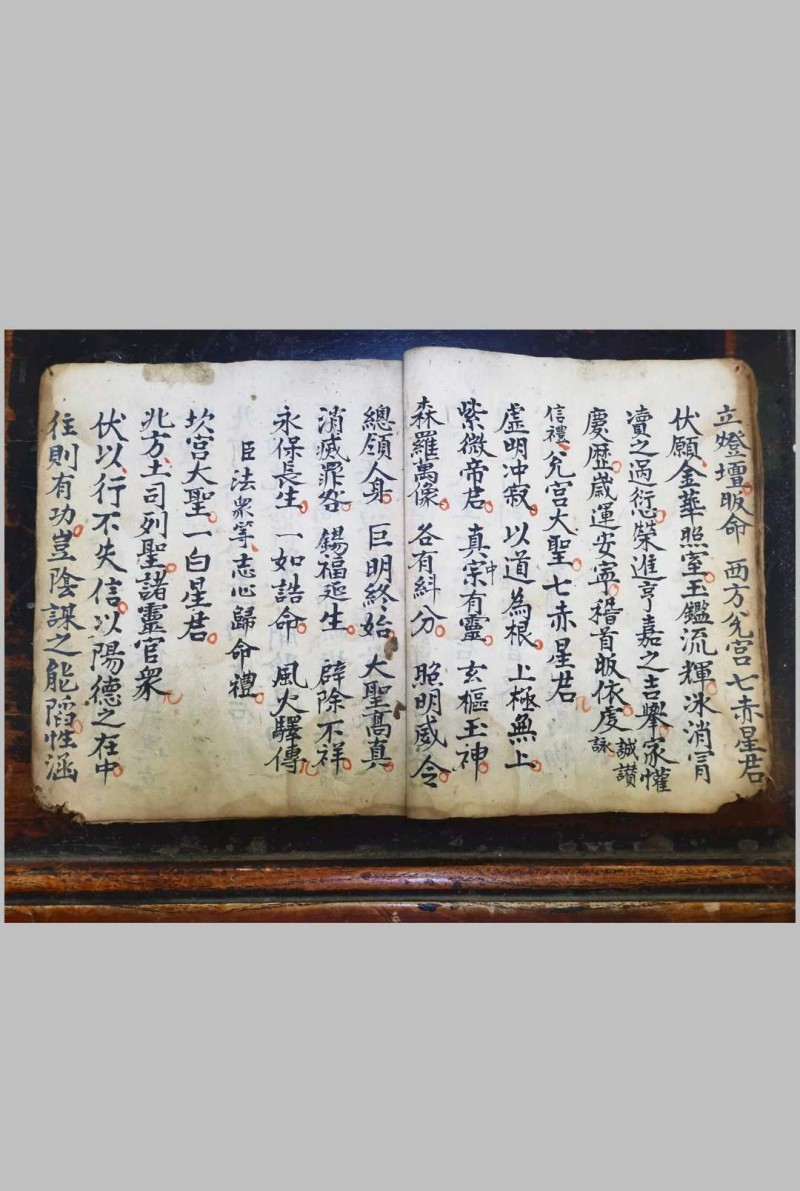 立燈壇皈命 西方兊宮七赤星君
伏願金華照室玉鑑流輝冰消冐
瀆之過愆榮進亨嘉之吉擧家懽
慶歷歲運安寧稽首皈依虔誠讃詠
信禮 兊宮大聖七赤星君
虛明冲寂 以道為根 上極無上
紫微帝君 真宗有靈 玄樞玉神
中
森羅萬像 各有糾分 照明威令
總領人身 巨明終始 大聖高真
消滅罪咎 錫福延生 辟除不祥
永保長生 一如誥命 風火驛傳
臣法衆等志心歸命禮
坎宮大聖一白星君
北方土司列聖諸靈官衆
伏以行不失信以陽德之在中
徃則有功豈陰謀之能陷性涵